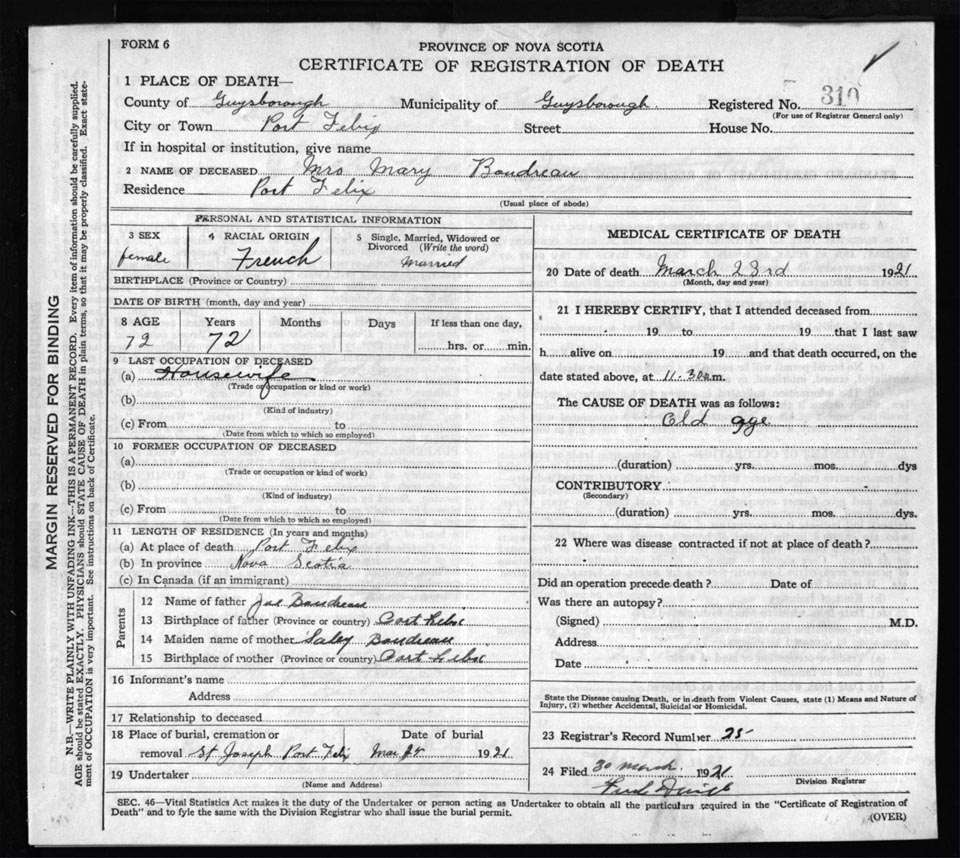 FORM 6
PROVINCE OF NOVA SCOTIA
CERTIFICATE OF REGISTRATION OF DEATH
1 PLACE OF DEATH—
County of Guysborough Municipality of Guysborough Registered No. 310
(For use of Registrar General only)
City or Town Port Felix Street House No.
If in hospital or institution, give name
2 NAME OF DECEASED Mrs Mary Boudreau
Residence Port Felix
(Usual place of abode)
PERSONAL AND STATISTICAL INFORMATION
3 SEX female
4 RACIAL ORIGIN French
5 Single, Married, Widowed or Divorced (Write the word) Married
BIRTHPLACE (Province or Country)
DATE OF BIRTH (month, day and year)
8 AGE Years Months Days If less than one day,
72 72 hrs. or min.
9 LAST OCCUPATION OF DECEASED
(a) Housewife
(Trade or occupation or kind or work)
(b)
(Kind of industry)
(c) From to
(Date from which to which so employed)
10 FORMER OCCUPATION OF DECEASED
(a)
(Trade or occupation or kind of work)
(b)
(Kind of industry)
(c) From to
(Date from which to which so employed)
11 LENGTH OF RESIDENCE (In years and months)
(a) At place of death Port Felix
(b) In province Nova Scotia
(c) In Canada (if an immigrant)
Parents
12 Name of father Joe Boudreau
13 Birthplace of father (Province or country) Port
14 Maiden name of mother Saley Boudreau
15 Birthplace of mother (Province or country) Port
16 Informant's name
Address
17 Relationship to deceased
18 Place of burial, cremation or Date of burial
removal St Joseph Port Felix Mar 1921
19 Undertaker
(Name and Address)
MEDICAL CERTIFICATE OF DEATH
20 Date of death March 23rd 1921
(Month, day and year)
21 I HEREBY CERTIFY, that I attended deceased from
19 to 19 that I last saw
h alive on 19 and that death occurred, on the
date stated above, at 11-30a.m.
The CAUSE OF DEATH was as follows:
Old age
(duration) yrs. mos. dys
CONTRIBUTORY
(Secondary)
(duration) yrs. mos. dys.
22 Where was disease contracted if not at place of death?
Did an operation precede death? Date of
Was there an autopsy?
(Signed) M.D.
Address
Date
State the Disease causing Death, or in death from Violent Causes, state (1) Means and Nature of
Injury, (2) whether Accidental, Suicidal or Homicidal.
23 Registrar's Record Number 25
24 Filed 30 march 1921
Division Registrar
SEC. 46—Vital Statistics Act makes it the duty of the Undertaker or person acting as Undertaker to obtain all the particulars required in the "Certificate of Registration of
Death" and to fyle the same with the Division Registrar who shall issue the burial permit.
(OVER)
MARGIN RESERVED FOR BINDING
N.B.—WRITE PLAINLY WITH UNFADING INK—THIS IS A PERMANENT RECORD. Every item of information should be carefully supplied.
AGE should be stated EXACTLY. PHYSICIANS should STATE CAUSE OF DEATH in plain terms, so that it may be properly classified. Exact state-
ment of OCCUPATION is very important. See instructions on back of Certificate.